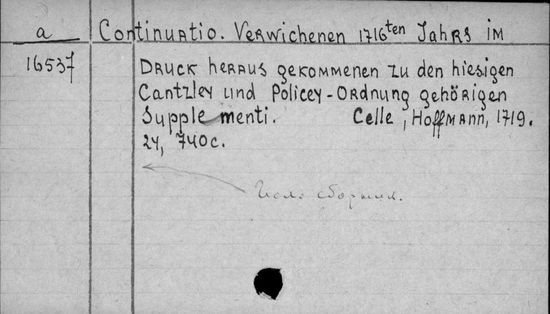 a Continuatio. Verwichenen 1716ten Jahrs im
16537 Druck heraus gekommenen zu den hiesigen
Cantzley und Policey-Ordnung gehörigen
Supplementi. Celle, Hoffmann, 1719.
24, 740c.